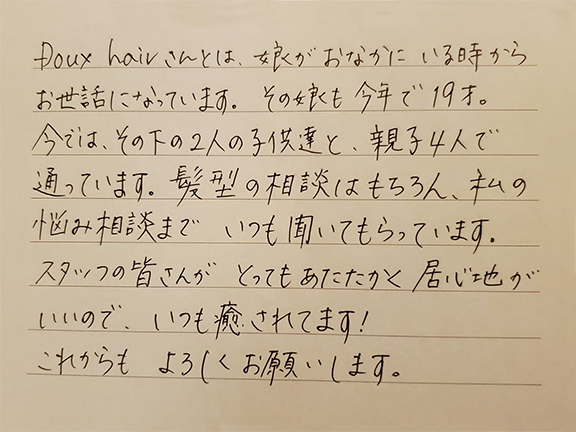 Doux hairさんとは、娘がおなかにいる時から
お世話になっています。その娘も今年で19才。
今では、その下の2人の子供達と、親子4人で
通っています。髪型の相談はもちろん、私の
悩み相談までいつも聞いてもらっています。
スタッフの皆さんがとってもあたたかく居心地が
いいので、いつも癒されてます!
これからもよろしくお願いします。